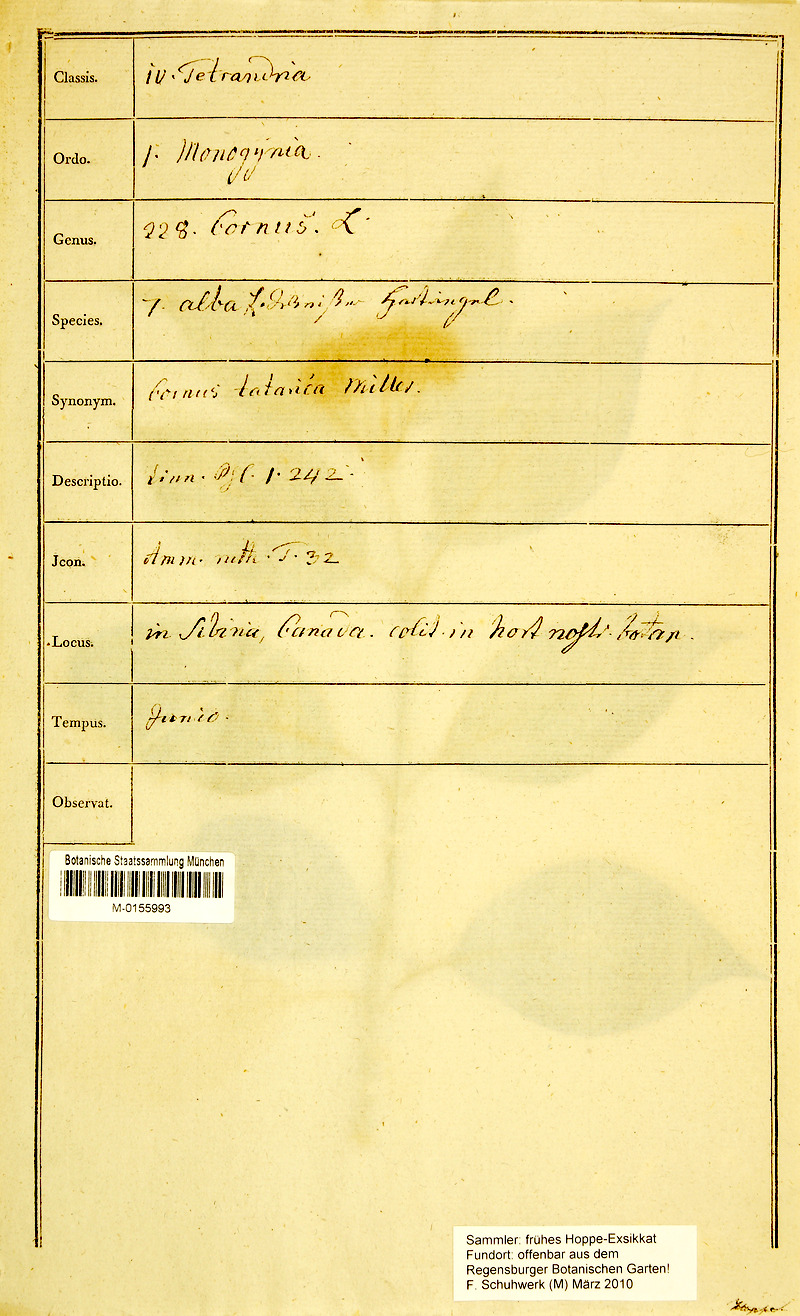 Classis. IV. Tetrandria
Ordo. 1. Monogynia.
Genus. 228. Cornus. L.
Species. 7. alba L. Weißer Hartriegel.
Synonym. Cornus tatarica Miller.
Descriptio. Linn. Pfl. 1. 242.
Jcon. Amm. ruth. T. 32
Locus. in Sibiria, Canada. colit. in hort nostr. botan.
Tempus. Junio.
Observat.
Botanische Staatssammlung München
M-0155993
Sammler: frühes Hoppe-Exsikkat
Fundort: offenbar aus dem
Regensburger Botanischen Garten!
F. Schuhwerk (M) März 2010